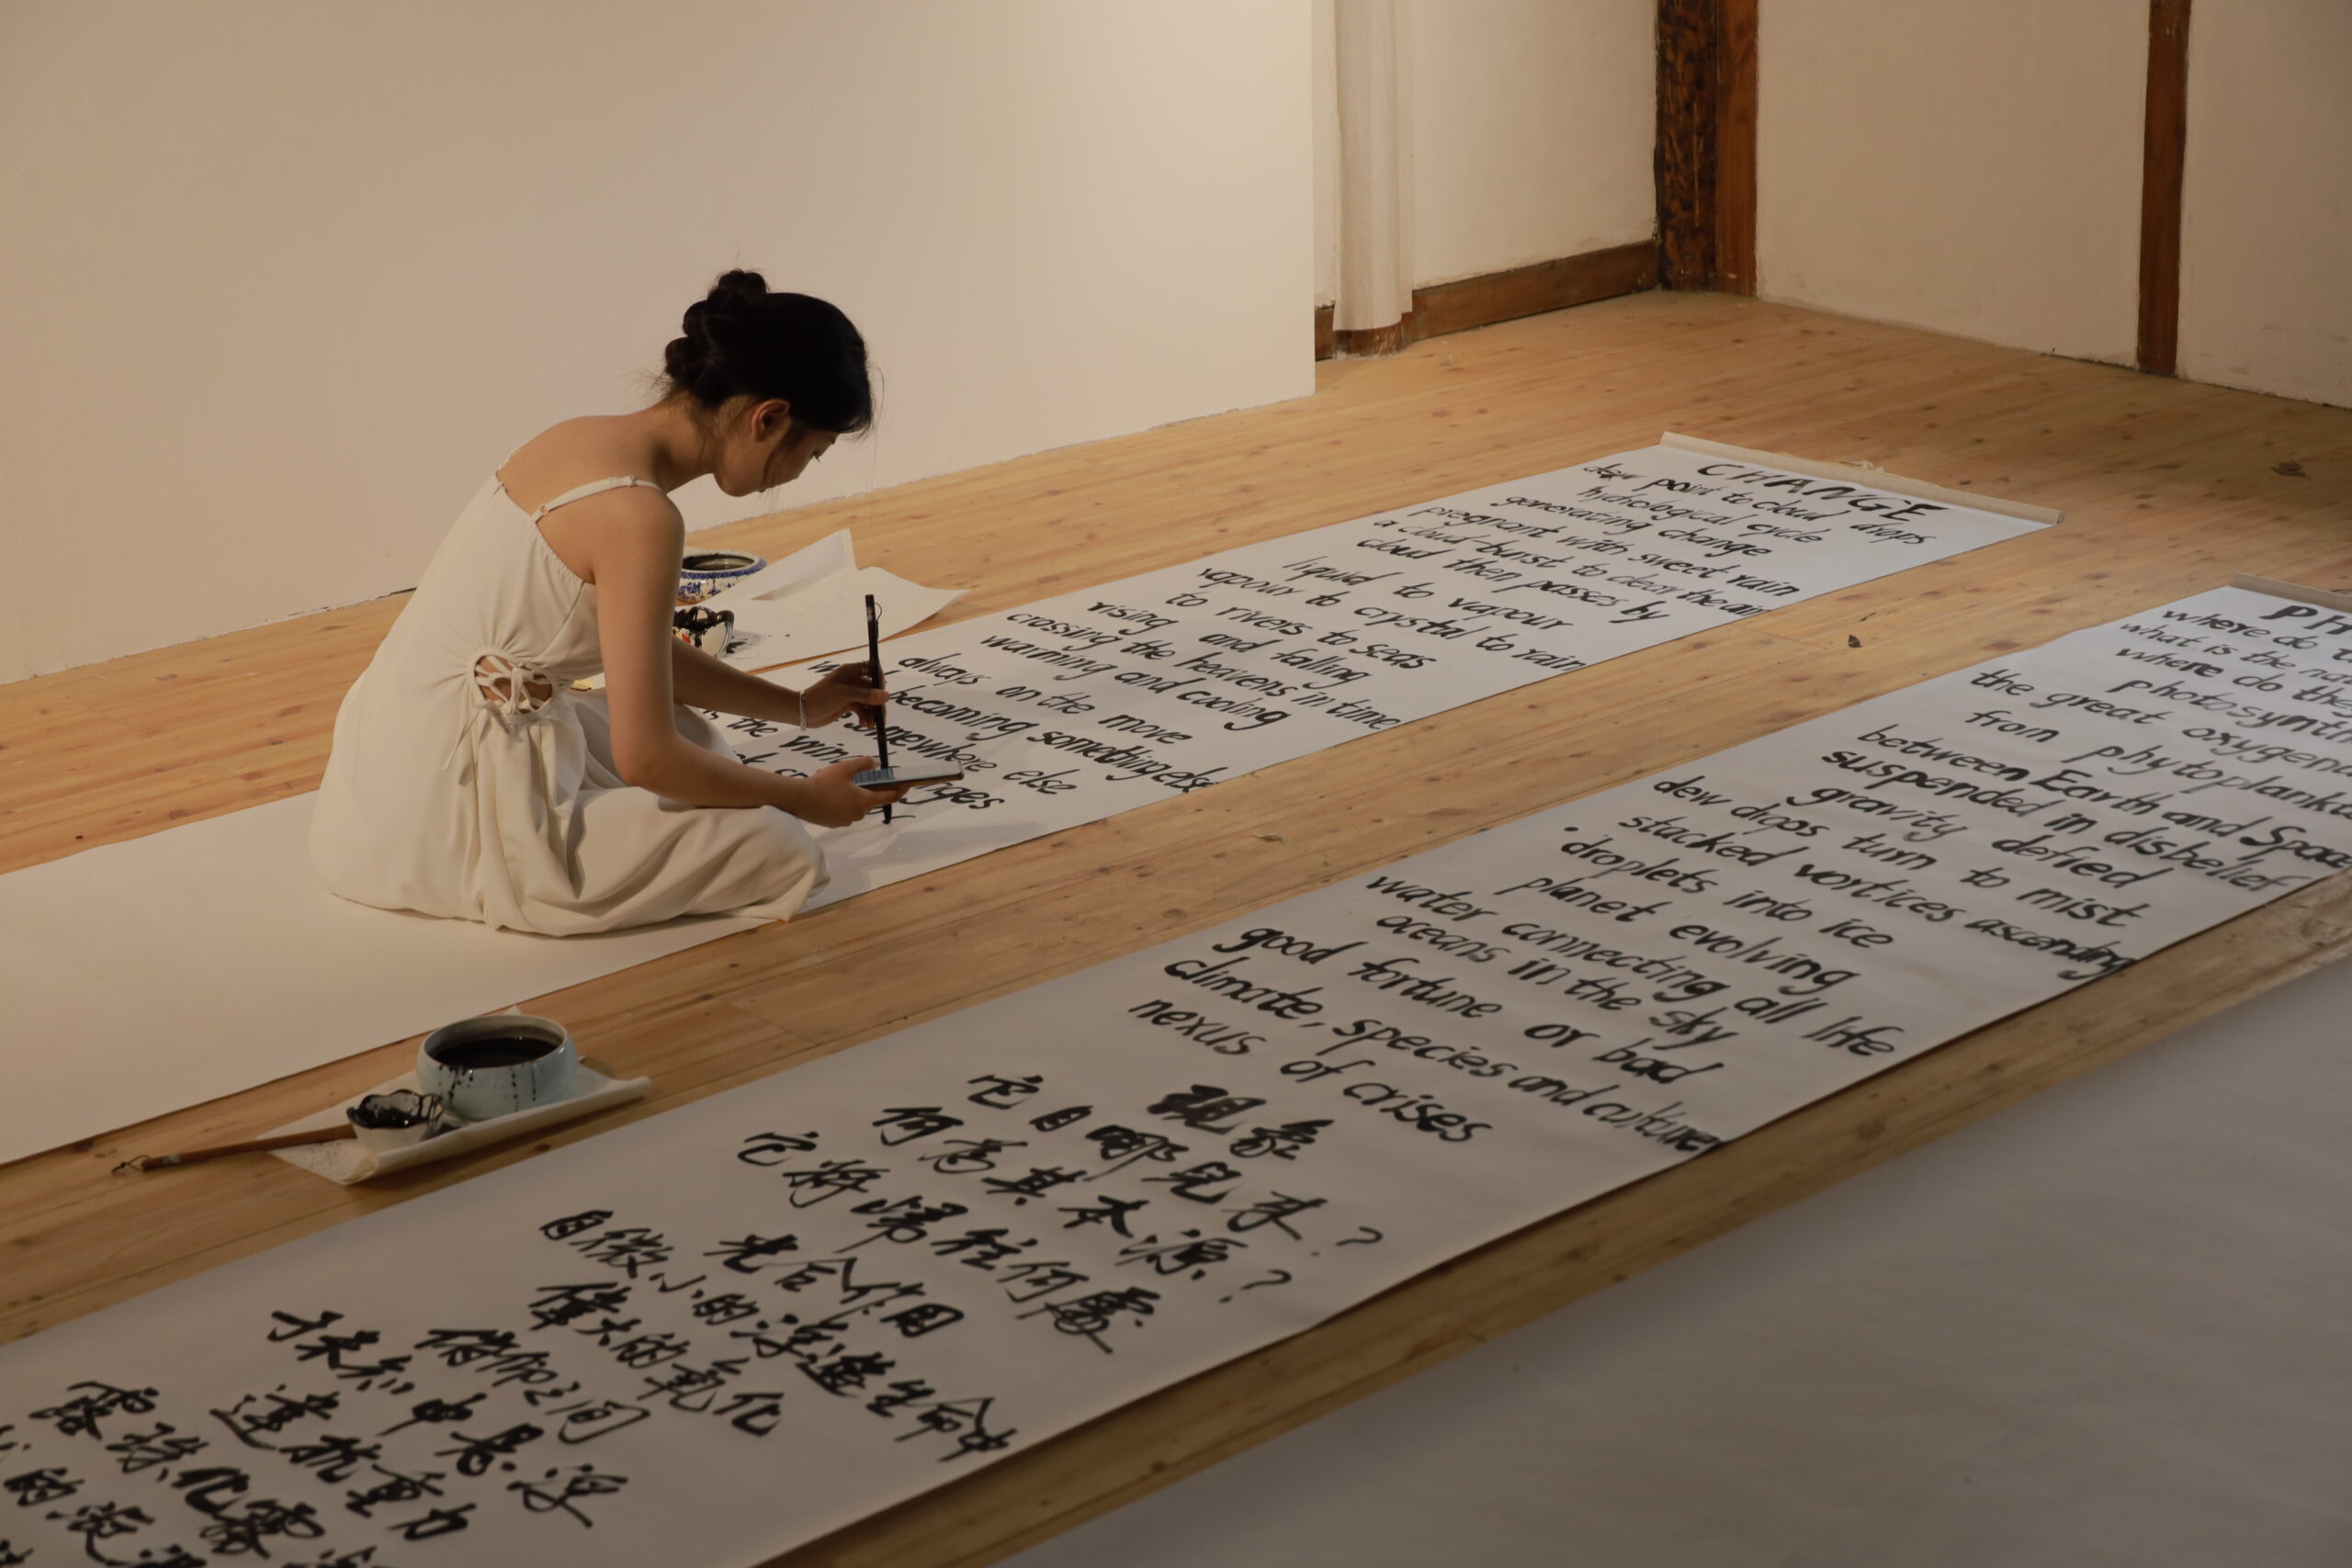 CHANGE
dew point to cloud drops
hydrological cycle
generating change
pregnant with sweet rain
a cloud-burst to clear the air
cloud then passes by
liquid to vapour
vapour to crystal to rain
to rivers to seas
rising and falling
crossing the heavens in time
warming and cooling
always on the move
becoming something else
somewhere else
the
where do
what is the
where do
photosynth
the great oxygen
from phytoplankto
between Earth and Space
suspended in disbelief
gravity defied
dew drops turn to mist
stacked vortices ascending
droplets into ice
planet evolving
water connecting all life
oceans in the sky
good fortune or bad
climate, species and culture
nexus of crises
現象
它自哪兒來?
何為其本源?
它將歸往何處
光合作用
自微小的浮遊生命中
偉大的氧化
俯仰之间
于未知中懸浮
違抗重力
露珠化霧